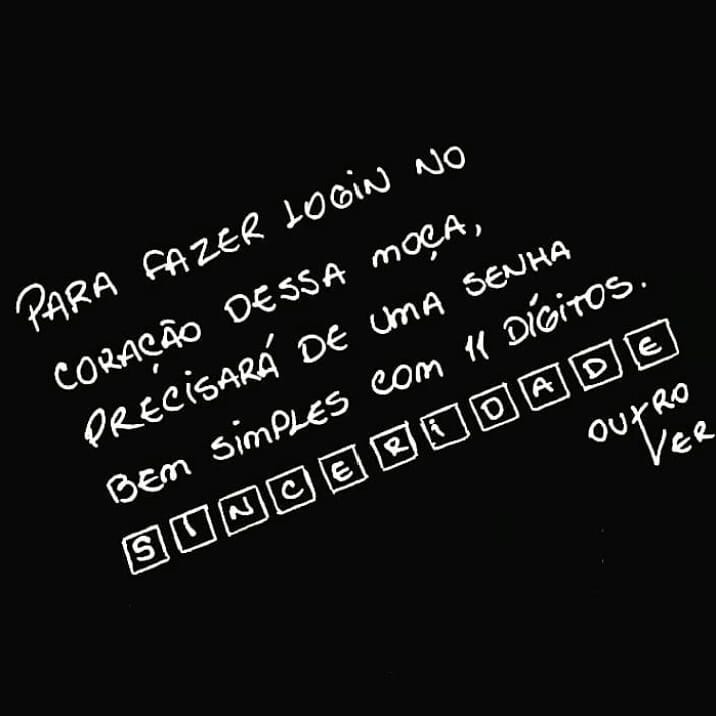 PARA FAZER LOGIN NO
CORAÇÃO DESSA MOÇA,
PRECISARÁ DE UMA SENHA
BEM SIMPLES COM 11 DÍGITOS.
SINCERIDADE
OUTRO
VER